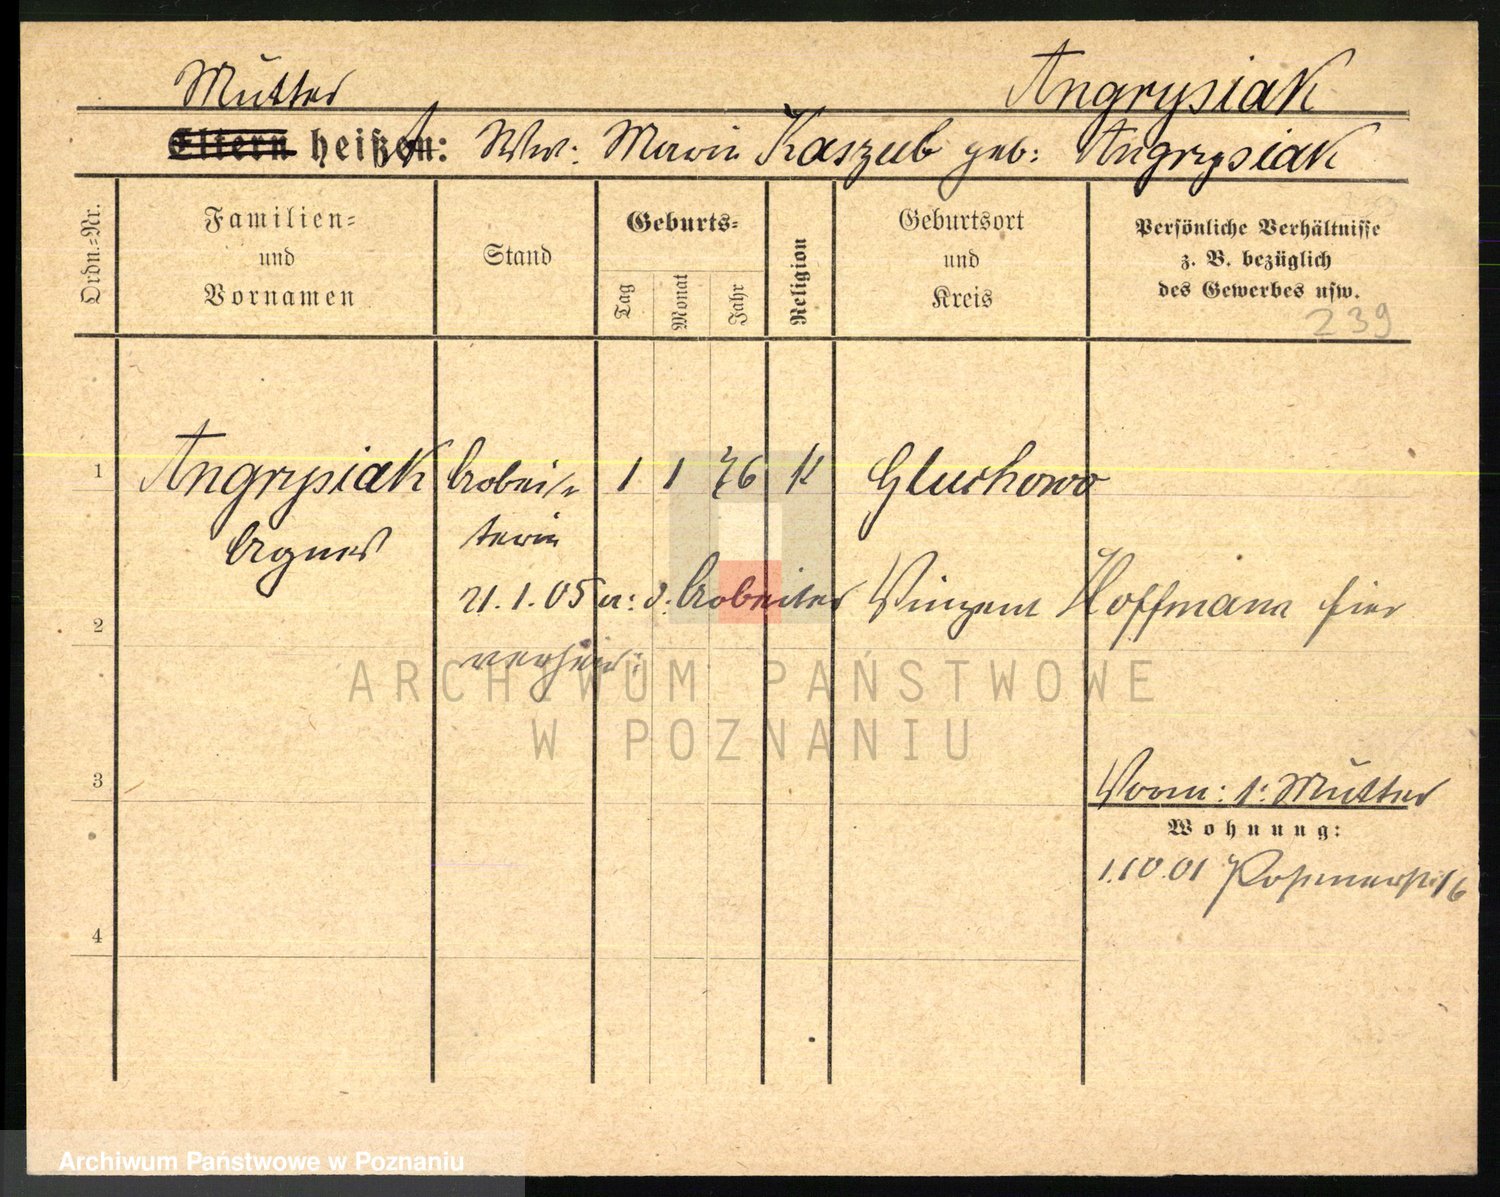 Mutter Angrysiak
Eltern heißt: Ww: Maria Kaszub geb: Angrysiak
Ordn.=Nr.
Familien=
und
Vornamen
Stand
Geburts=
Tag
Monat
Jahr
Religion
Geburtsort
und
Kreis
Persönliche Verhältnisse
z. B. bezüglich
des Gewerbes usw.
239
1 Angrysiak Arbei= 1 1 76 K Gluchowo
Agnes terin
2 21.1.05 m: d: Arbeiter Vinzent Hoffmann hier
verheir:
ARCHIWUM PAŃSTWOWE
W POZNANIU
3 Vorm: s: Mutter
Wohnung:
1.10.01 Posenerstr 16
4
Archiwum Państwowe w Poznaniu